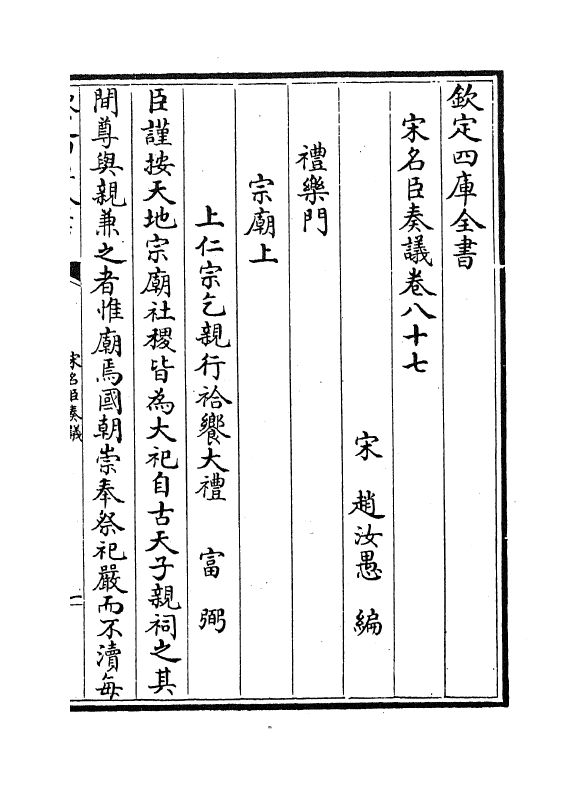 欽定四庫全書
宋名臣奏議卷八十七
宋 趙汝愚 編
禮樂門
宗廟上
上仁宗乞親行祫饗大禮 富弼
臣謹按天地宗廟社稷皆為大祀自古天子親祠之其
間尊與親兼之者惟廟焉國朝崇奉祭祀嚴而不瀆每
宋名臣奏議